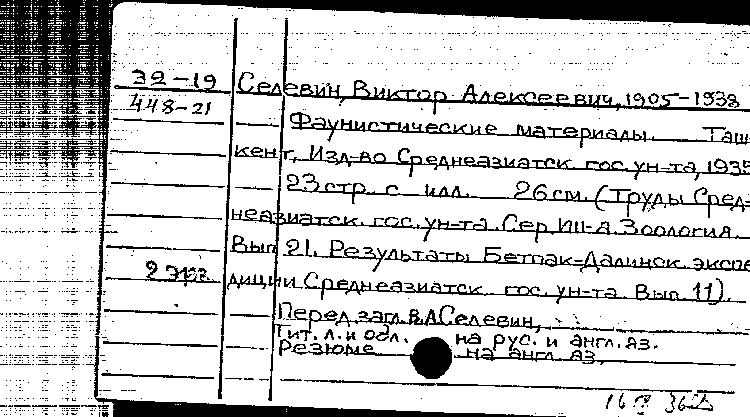 32-19 Селевин, Виктор Алексеевич, 1905-1938
448-21 Фаунистические материалы. Таш-
кент, Изд-во Среднеазиатск. гос. ун-та, 1935
23 стр. с илл. 26 см. (Труды Сред-
неазиатск. гос. ун-та. Сер. VIII-а. Зоология.
Вып. 21. Результаты Бетпак-Далинск. экспе
2 экз. диции Среднеазиатск. гос. ун-та. Вып. 11).
Перед загл. В.А. Селевин,
Тит. л. и обл. на рус. и англ. яз.
Резюме на англ. яз.